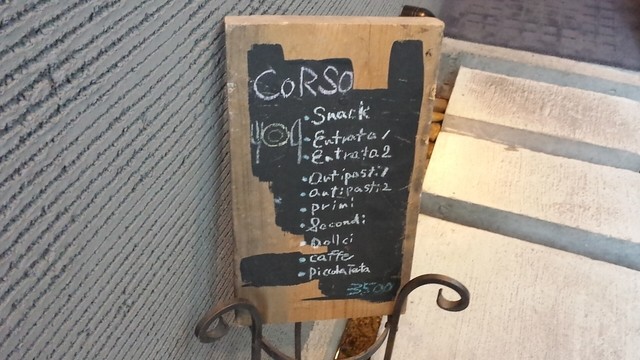 CORSO
• Snack
• Entrata1
• Entrata2
• Antipasti1
• antipasti2
• primi
• Secondi
• Dollci
• caffe
• Piccola Festa
3500